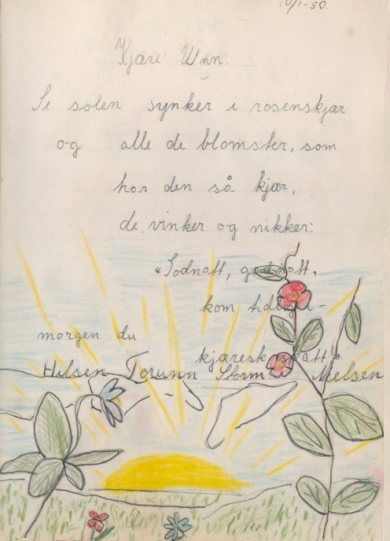 10/1-50.
Kjære Unn.
Se solen synker i rosenskjær
og alle de blomster, som
har den så kjær,
de vinker og nikker:
"Godnatt, godnatt,
kom tidlig-
morgen du
kjæreskespatt"
Hilsen Torunn Storm Nielsen